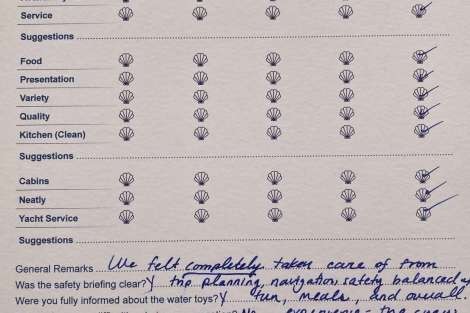 Service
Suggestions
Food
Presentation
Variety
Quality
Kitchen (Clean)
Suggestions
Cabins
Neatly
Yacht Service
Suggestions
General Remarks We felt completely taken care of from
Was the safety briefing clear? Y trip planning, navigation, safety balanced
Were you fully informed about the water toys? Y fun, meals, and overall.